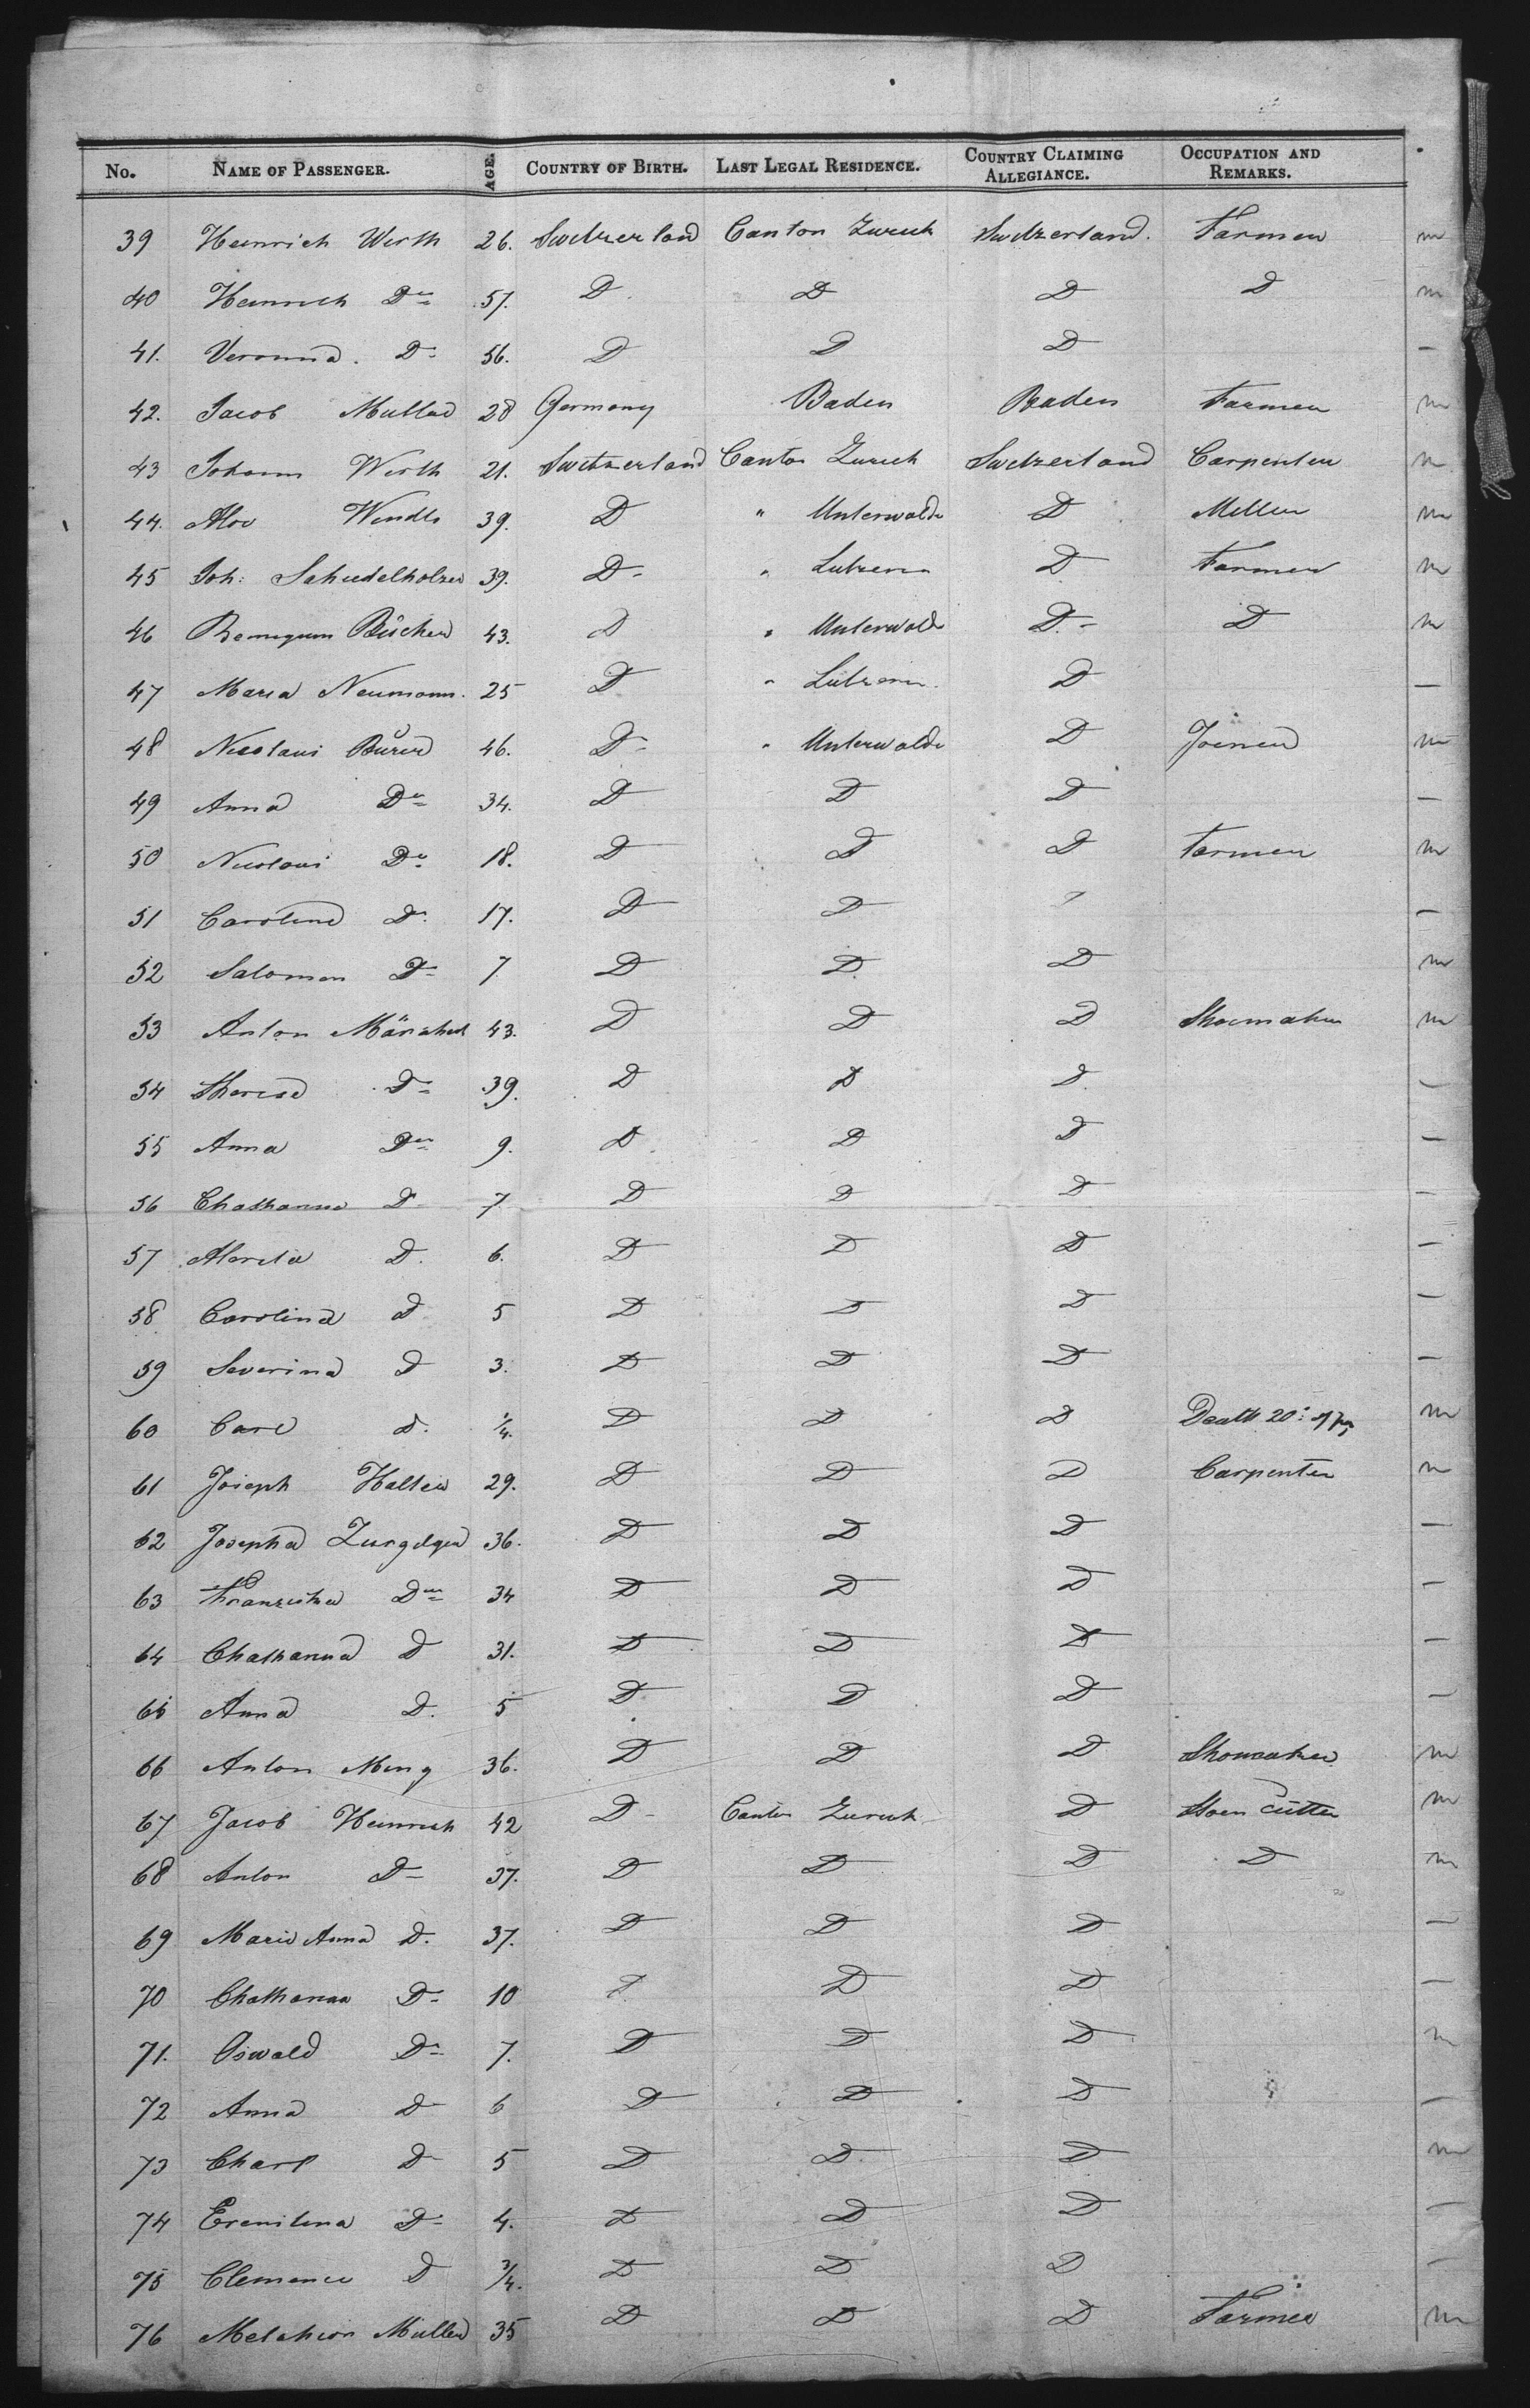 No. NAME OF PASSENGER. AGE. COUNTRY OF BIRTH. LAST LEGAL RESIDENCE. COUNTRY CLAIMING ALLEGIANCE. OCCUPATION AND REMARKS.
39 Heinrich Wirth 26. Switzerland Canton Zurich Switzerland. Farmer m
40 Heinrich Do 57. D D D D m
41. Veronna. Do 56. D D D —
42. Jacob Muller 28 Germany Baden Baden Farmer m
43 Johann Wirth 21. Switzerland Canton Zurich Switzerland Carpenter m
44. Wendls 39. D " Unterwalde D Miller m
45 Joh: 39. D " Luzern D Farmer m
46 Bücher 43. D " Unterwald D D m
47 Maria Neumann. 25 D " Luzern. D —
48 Nicolaus Bürer 46. D " Unterwalde D Joiner m
49 Anna Do 34. D D D —
50 Nicolaus Do 18. D D D Farmer m
51 Caroline D. 17. D D —
52 Salomon D 7 D D D m
53 Anton 43. D D D Shoemaker m
54 Therese D 39. D D D. —
55 Anna Do 9. D. D D —
56 Chatharina D 7 D D D —
57 D. 6. D D D —
58 Carolina D 5 D D D —
59 Severina D 3. D D D —
60 Carl D. 1/4. D D D Death 20: m
61 Joseph Halter 29. D D D Carpenter m
62 Josepha 36. D D D —
63 Franziska Do 34 D D D —
64 Chatharina D 31. D D D —
65 Anna D. 5 D D D —
66 Anton Ming 36. D D D Shoemaker m
67 Jacob Heinrich 42 D Canton Zurich D cutter m
68 Anton D 37. D D D D m
69 Marie Anna D. 37. D D D —
70 Chatharina D 10 D D —
71. Oswald D 7. D D D m
72 Anna D 6 D D D —
73 Charl D 5 D D D m
74 D 4. D D D —
75 Clemence D 3/4. D D D —
76 Melchior Muller 35 D D D Farmer m